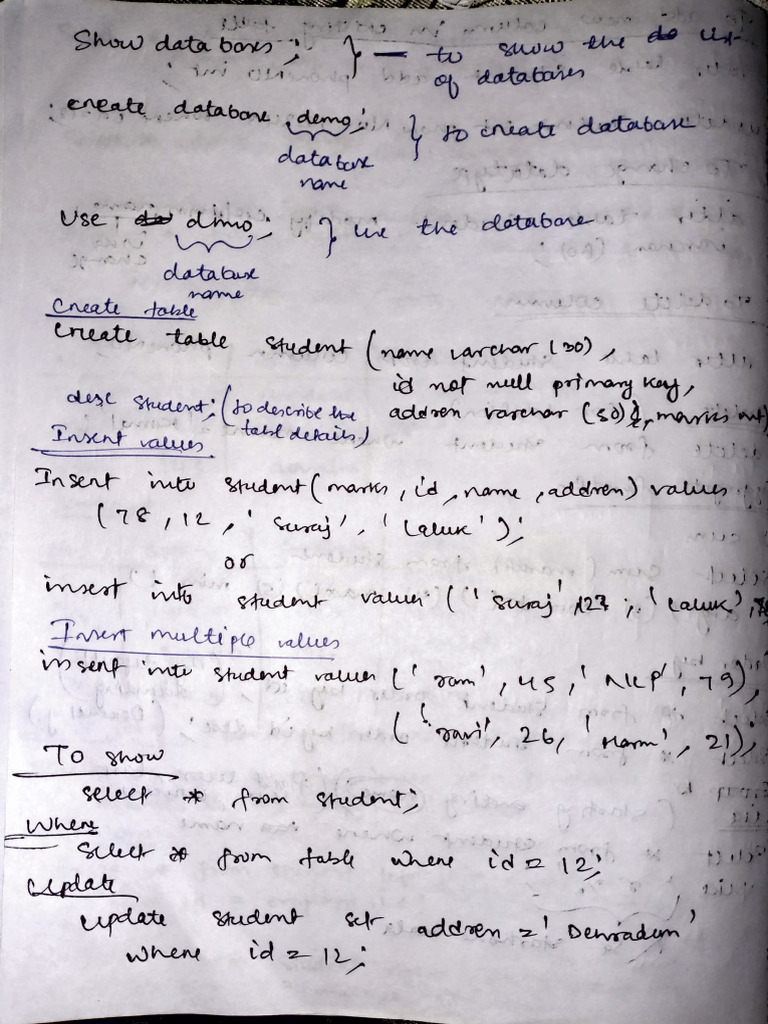 Show databases; } — to show the list
of databases
create database demo; } to create database
database
name
Use demo; } use the database
database
name
Create table
Create table student (name varchar (30),
id not null primary key,
desc student; (to describe the address varchar (50), marks int)
table details)
Insert values
Insert into student (marks, id, name, address) values
(78, 12, 'Suraj', 'Laluk');
or
insert into student values ('Suraj', 'Laluk',
Insert multiple values
insert into student values ('ram', 45, 'NKP', 79),
('ravi', 26, 'Harm', 21);
To show
select * from student;
Where
Select * from table where id = 12;
Update
Update student set address = 'Dehradun'
where id = 12;